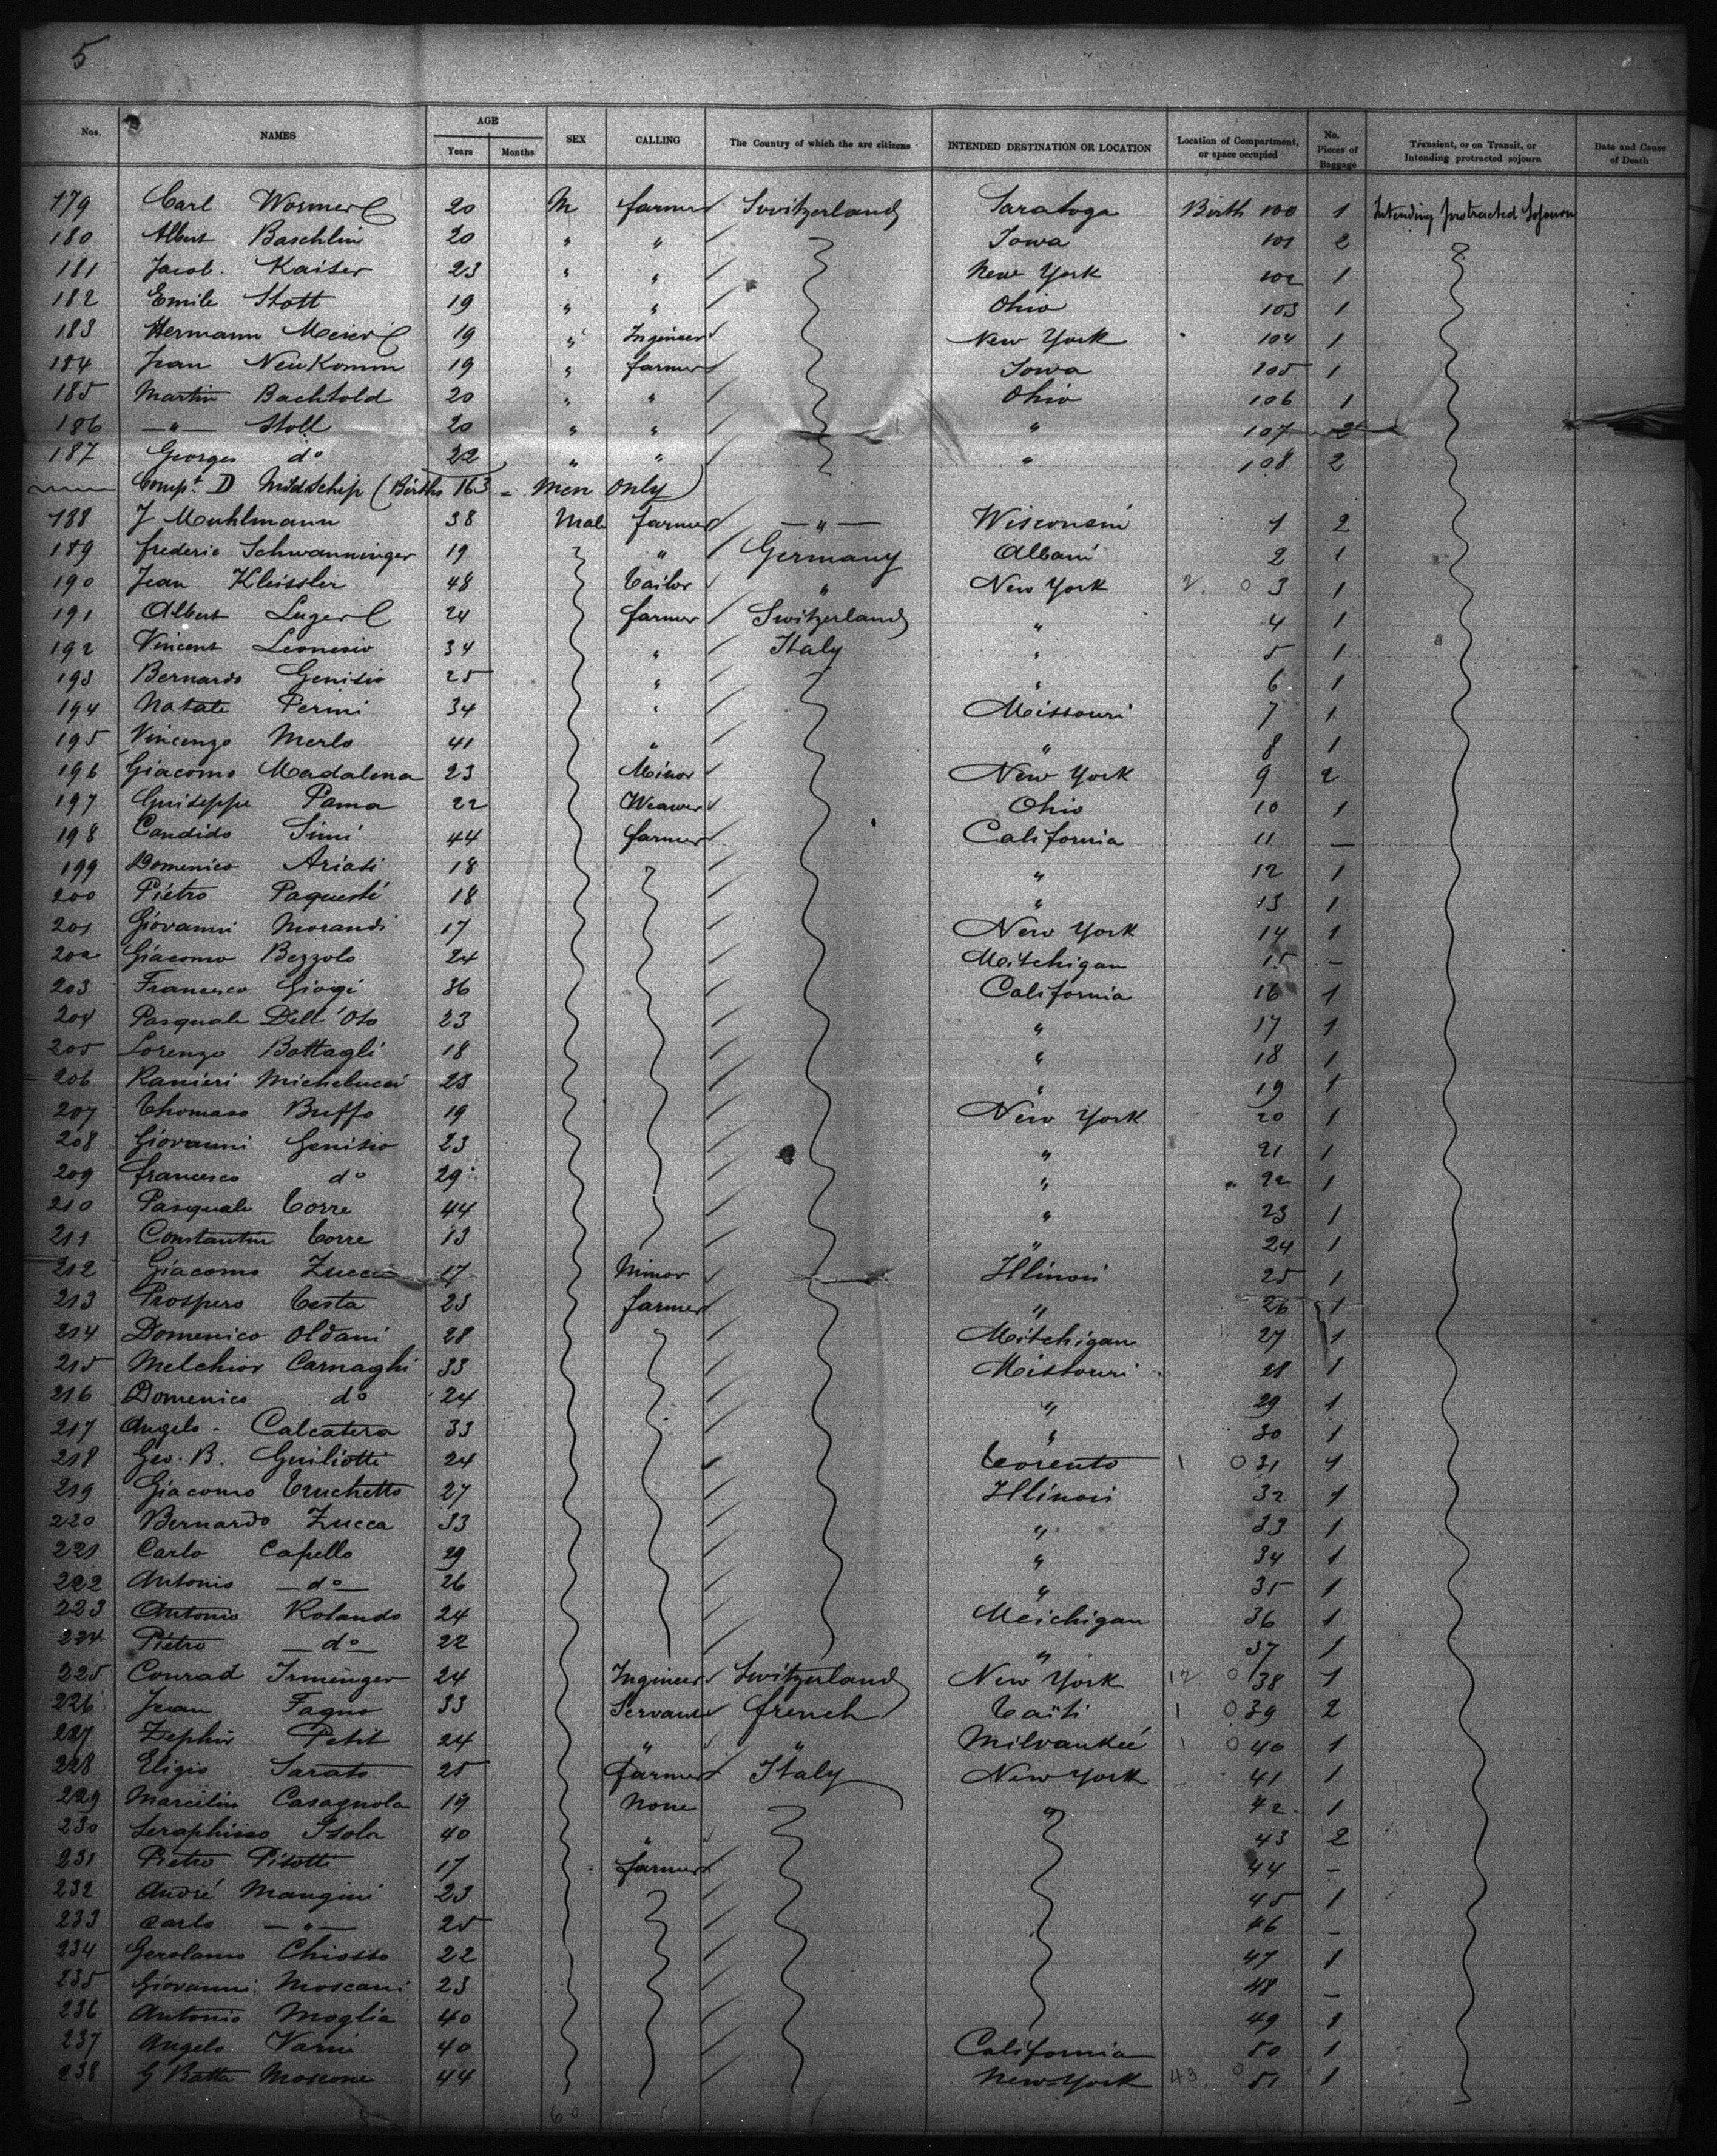 5
Nos. NAMES AGE Years Months SEX CALLING The Country of which the are citizens INTENDED DESTINATION OR LOCATION Location of Compartment, or space occupied No. Pieces of Baggage Transient, or on Transit, or Intending protracted sojourn Date and Cause of Death
179 Carl Wormer 20 M farmer Switzerland Saratoga Birth 100 1 Intending protracted Sojourn
180 Albert Baschlin 20 " " Iowa 101 2
181 Jacob. Kaiser 23 " " New York 102 1
182 Emile Stott 19 " " Ohio 103 1
183 Hermann Meier 19 " Ingineer New York 104 1
184 Jean Neukomm 19 " farmer Iowa 105 1
185 Martin Bachtold 20 " " Ohio 106 1
186 —"— Stoll 20 " " " 107 2
187 Georges do 22 " " " 108 2
Compt. D Middschip (Births 163 - Men only)
188 J Muhlmann 38 Male farmer —"— Wisconsin 1 2
189 frederic Schwanninger 19 " Germany Albani 2 1
190 Jean Kleissler 48 Tailor " New York 2 0 3 1
191 Albert Luger 24 farmer Switzerland " 4 1
192 Vincent Leonesio 34 " Italy " 5 1
193 Bernardo Genisio 25 " " 6 1
194 Natale Perini 34 " Missouri 7 1
195 Vincenzo Merlo 41 " " 8 1
196 Giacomo Madalena 23 Minor New York 9 2
197 Guiseppe Pama 22 Weawer Ohio 10 1
198 Candido Simi 44 farmer California 11 —
199 Domenico Ariasi 18 " 12 1
200 Piétro Paquesté 18 " 13 1
201 Giovanni Morandi 17 New York 14 1
202 Giacomo Bezzolo 24 Mitchigan 15 –
203 Francesco Giogi 36 California 16 1
204 Pasquale Dell'Oto 23 " 17 1
205 Lorenzo Battagli 18 " 18 1
206 Ranieri Michelucci 23 " 19 1
207 Thomaso Buffo 19 New York 20 1
208 Giovanni Genisio 23 " 21 1
209 francesco do 29 " 22 1
210 Pasquale Torre 44 " 23 1
211 Constantin Torre 13 " 24 1
212 Giacomo Zucca 17 Minor Illinois 25 1
213 Prospero Testa 23 farmer " 26 1
214 Domenico Oldani 28 Mitchigan 27 1
215 Melchior Carnaghi 33 Missouri 28 1
216 Domenico do 24 " 29 1
217 Angelo Calcatera 33 " 30 1
218 Geo. B. Guiliotti 24 Torento 1 0 31 1
219 Giacomo Truchetto 27 Illinois 32 1
220 Bernardo Zucca 33 " 33 1
221 Carlo Capello 29 " 34 1
222 Antonio —do— 26 " 35 1
223 Antonio Rolando 24 Meichigan 36 1
224 Piétro —do— 22 " 37 1
225 Conrad Irminger 24 Ingineer Switzerland New York 12 0 38 1
226 Jean Fagno 33 Servant french Taïti 1 0 39 2
227 Zephir Petit 24 " " Milvaukéé 1 0 40 1
228 Eligio Sarato 25 farmer Italy New York 41 1
229 Marcelin Casagnola 19 None " 42 1
230 Seraphino Isola 40 " 43 2
231 Pietro Pisotti 17 farmer 44 –
232 André Mangini 23 45 1
233 Carlo —"— 25 46 –
234 Gerolamo Chiosso 22 47 1
235 Giovanni Moscani 23 48 –
236 Antonio Moglia 40 49 1
237 Angelo Varni 40 California 50 1
238 G Batta Moscone 44 New York 43 0 51 1
60